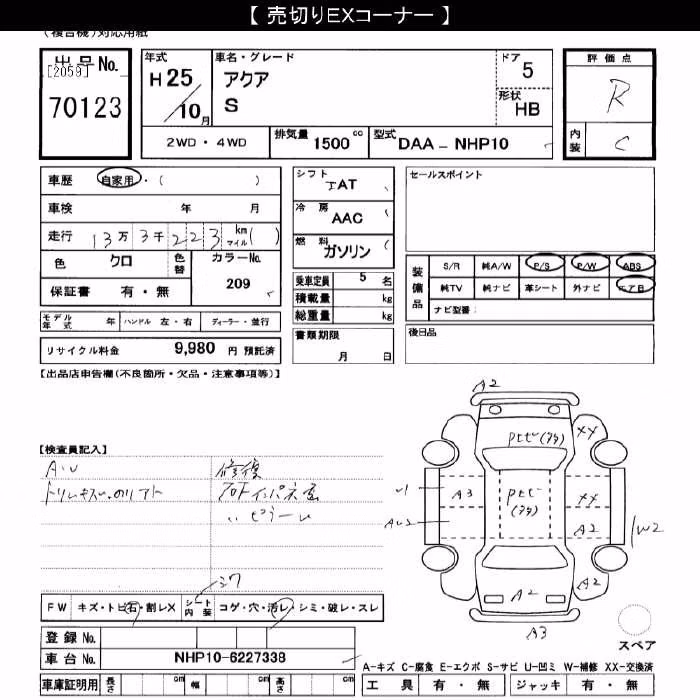 【 売切りEXコーナー 】
(複合機)対応用紙
出品No.
[2059]
70123
年式
H 25
10 月
車名・グレード
アクア
S
ドア
5
形状
HB
評価点
R
内装
C
2WD ・ 4WD
排気量 1500 cc
型式 DAA - NHP10
車歴 自家用・( )
車検 年 月
走行 13万3千223 km マイル ( )
色 クロ 色替
カラーNo. 209
保証書 有・無
モデル年式 年 ハンドル 左・右 ディーラー・並行
リサイクル料金 9,980 円 預託済
シフト
IAT
冷房
AAC
燃料
ガソリン
乗車定員 5 名
積載量 kg
総重量 kg
書類期限
月 日
セールスポイント
装備品
S/R 純A/W P/S P/W ABS
純TV 純ナビ 革シート 外ナビ エアB
ナビ型番:
後日品
【出品店申告欄(不良箇所・欠品・注意事項等)】
【検査員記入】
A・U
トリムキズ・ノリアト
修復
〃ピラー〃
シワ
A2
XX
A3
XX
A2
AU2
W2
A2
A2
A3
スペア
FW キズ・トビ石・割レX シート内装 コゲ・穴・汚レ・シミ・破レ・スレ
登録 No.
車台 No. NHP10-6227338
車庫証明用 長さ cm 幅 cm 高さ cm
A-キズ C-腐食 E-エクボ S-サビ U-凹ミ W-補修 XX-交換済
工具 有・無 ジャッキ 有・無